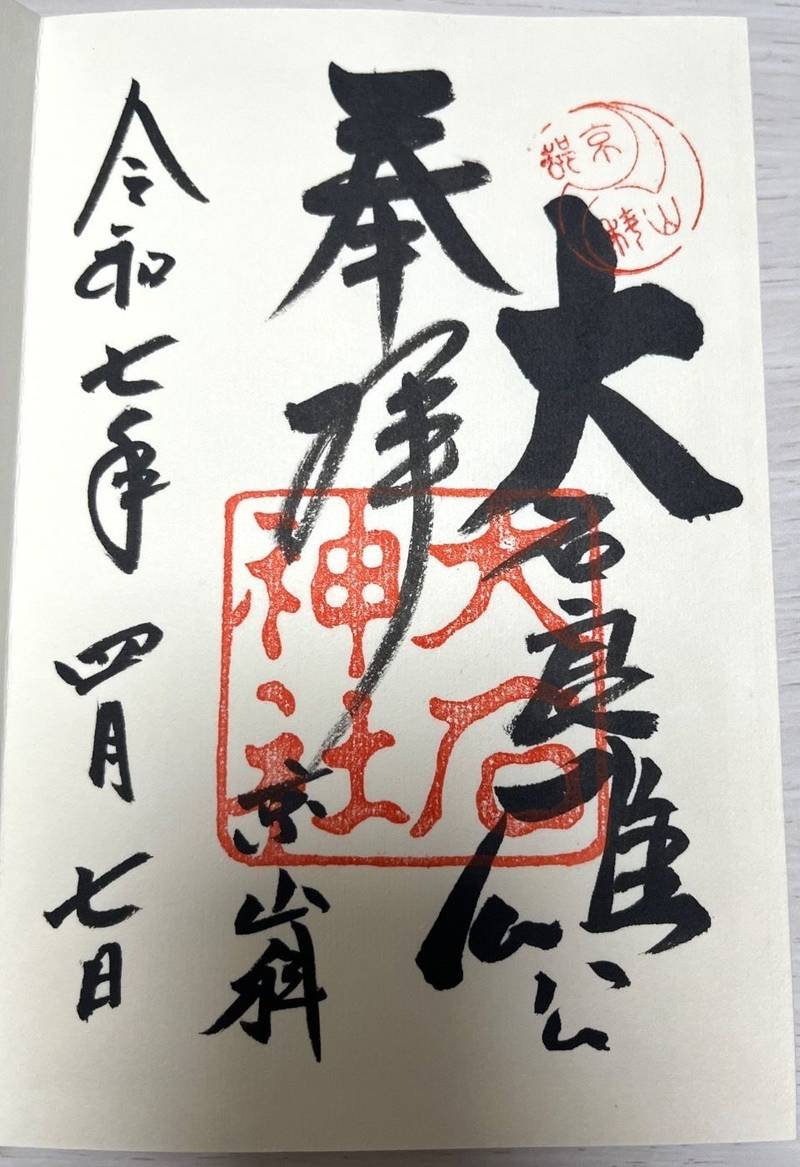 大石良雄公
奉拝
大石
神社
京山科
令和七年 四月 七日